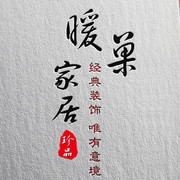 暖巢
家居
经典装饰 唯有意境
珍品